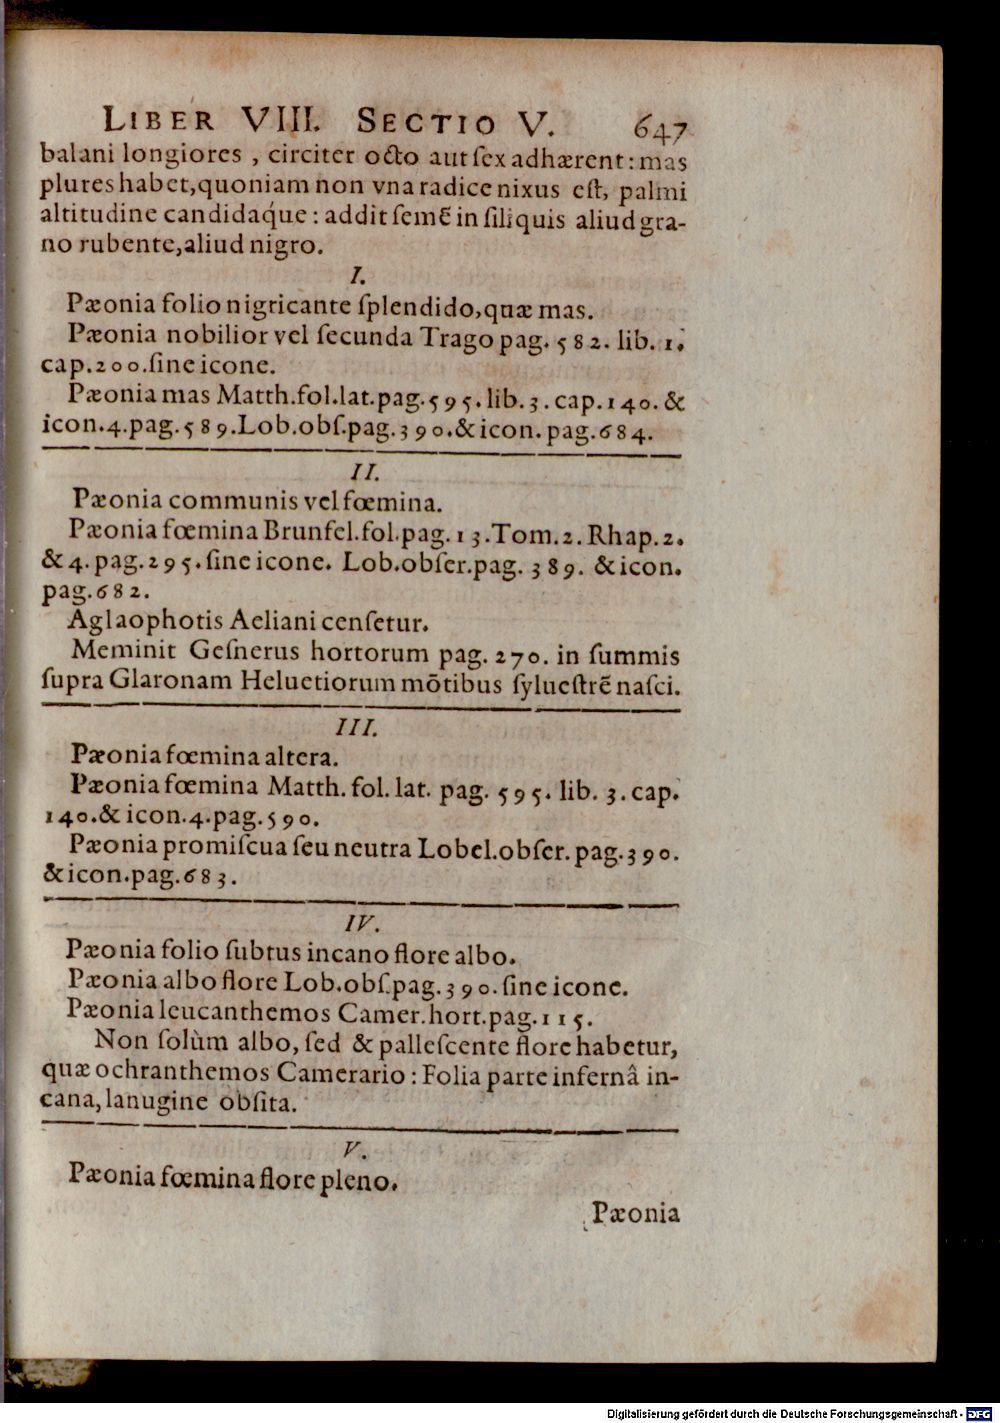 LIBER VIII. SECTIO V. 647
balani longiores , circiter octo aut ſex adhærent : mas
plures habet,quoniam non vna radice nixus eſt, palmi
altitudine candidaq́ue : addit ſemẽ in ſiliquis aliud gra-
no rubente,aliud nigro.
I.
Pæonia folio nigricante ſplendido,quæ mas.
Pæonia nobilior vel ſecunda Trago pag. 582. lib. 1.
cap.200.ſine icone.
Pæonia mas Matth.fol.lat.pag.595.lib.3.cap.140.&
icon.4.pag.589.Lob.obſ.pag.390.&icon.pag.684.
II.
Pæonia communis vel fœmina.
Pæonia fœmina Brunfel.fol.pag.13.Tom.2.Rhap.2.
&4.pag.295.ſine icone. Lob.obſer.pag. 389. &icon.
pag.682.
Aglaophotis Aeliani cenſetur.
Meminit Geſnerus hortorum pag. 270. in ſummis
ſupra Glaronam Heluetiorum mõtibus ſylueſtrẽ naſci.
III.
Pæonia fœmina altera.
Pæonia fœmina Matth. fol. lat. pag. 595. lib. 3. cap.
140.&icon.4.pag.590.
Pæonia promiſcua ſeu neutra Lobel.obſer.pag.390.
&icon.pag.683.
IV.
Pæonia folio ſubtus incano flore albo.
Pæonia albo flore Lob.obſ.pag.390.ſine icone.
Pæonia leucanthemos Camer.hort.pag.115.
Non ſolùm albo, ſed & palleſcente flore habetur,
quæ ochranthemos Camerario : Folia parte infernâ in-
cana, lanugine obſita.
V.
Pæonia fœmina flore pleno.
Pæonia
Digitalisierung gefördert durch die Deutsche Forschungsgemeinschaft - DFG